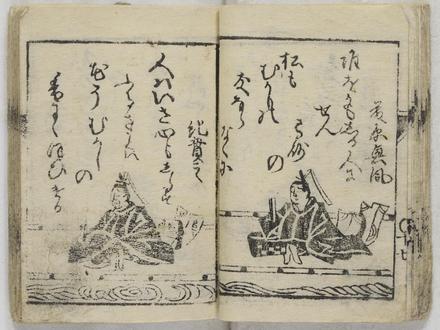 藤原興風
誰をかもしる人に
せん
高砂
の
松も
むかしの
友なら
なくに
紀貫之
人はいさ心もしらす
ふるさとは
花そむかし
の
香にほひける